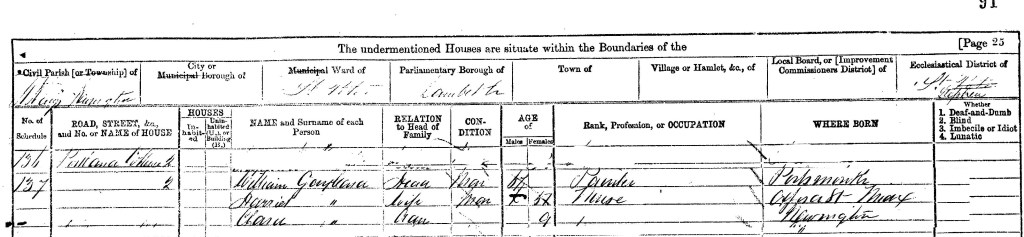 91
The undermentioned Houses are situate within the Boundaries of the [Page 25
Civil Parish [or Township] of
City or Municipal Borough of
Municipal Ward of
Parliamentary Borough of
Town of
Village or Hamlet, &c., of
Local Board, or [Improvement Commissioners District] of
Ecclesiastical District of
Newington
St
Lambeth
St
Stephen
No. of Schedule
ROAD, STREET, &c., and No. or NAME of HOUSE
HOUSES
In-habit-ed
Unin-habited (U.), or Building (B.)
NAME and Surname of each Person
RELATION to Head of Family
CON-DITION
AGE of
Males
Females
Rank, Profession, or OCCUPATION
WHERE BORN
Whether
1. Deaf-and-Dumb
2. Blind
3. Imbecile or Idiot
4. Lunatic
136
137 2 William Head Mar Painter Portsmouth
Harriet " Wife Mar Nurse
Clara " 9 Newington